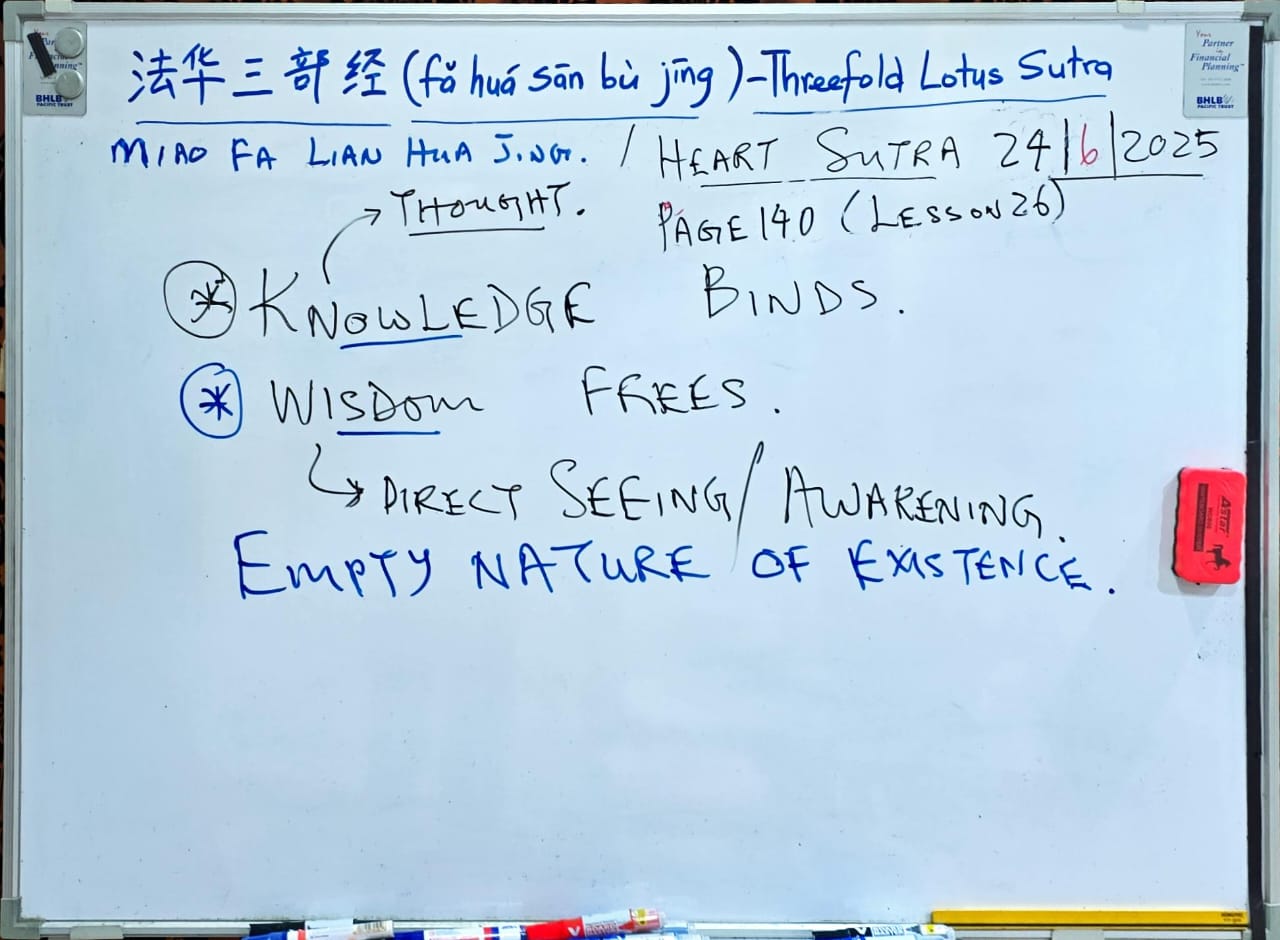 法华三部经 (fǎ huá sān bù jīng) - Threefold Lotus Sutra
MIAO FA LIAN HUA JING. / HEART SUTRA 24|6|2025
THOUGHT. PAGE 140 (LESSON 26)
* KNOWLEDGE BINDS.
* WISDOM FREES.
DIRECT SEEING / AWAKENING.
EMPTY NATURE OF EXISTENCE.
Your
Partner
in
Financial
Planning™
BHLB
PACIFIC TRUST
BHLB
PACIFIC TRUST
Astar